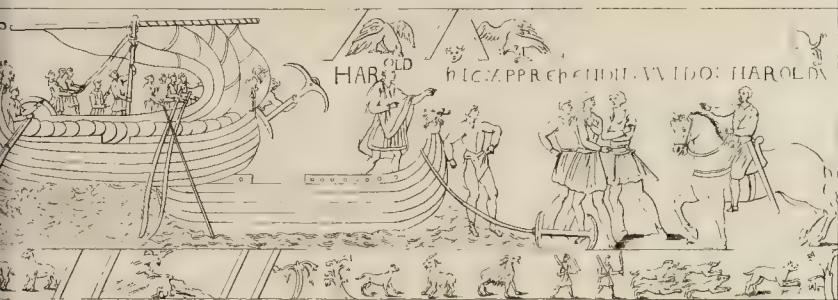 HAROLD
hIC:APPREhENDIT:VVIDO: HAROLDV